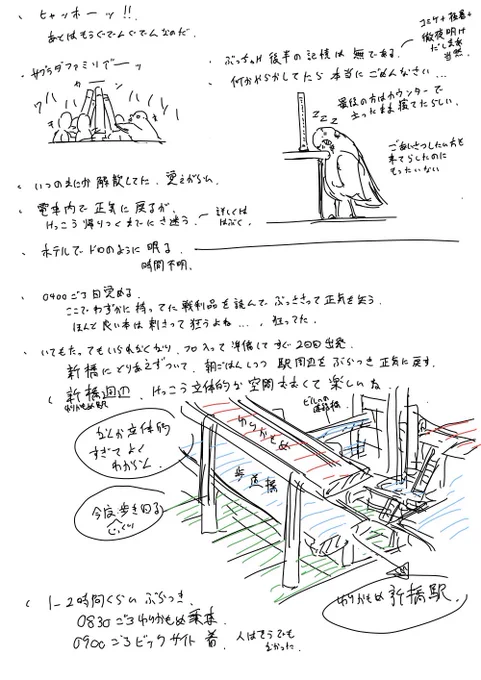 ヒャッホーッ!!
あとはもうぐでんぐでんなのだ。
サグラダファミリアーッ
ワハハ
ぶっちゃけ後半の記憶は無である。
コミケ+後番+
徹夜明け
だしまあ
当然。
何かやらかしてたら本当にごめんなさい…
最後の方はカウンターで
立ったまま寝てたらしい。
zzz
ごあいさつしたい方も
来てらしたのに
もったいない
いつのまにか解散してた。覚えがない。
電車内で正気に戻るが、
けっこう帰りつくまでにさ迷う。
詳しくは
はぶく。
ホテルでドロのように眠る。
時間不明。
0400ごろ目覚める。
ここでわずかに持ってた戦利品を読んでぶっささって正気を失う。
ほんと良い本は刺さって狂うよね…、狂ってた。
いてもたってもいられなくなり、フロ入って準備してすぐ2日目出発。
新橋にとりあえずついて、朝ごはんしつつ駅周辺をぶらつき正気に戻す。
新橋周辺、けっこう立体的な空間多くて楽しいね
ゆりかもめ駅
ビルへの連絡橋
なんか立体的
すぎてよく
わからん。
ゆりかもめ
歩道橋
今度歩き回る
じっくり
ゆりかもめ新橋駅。
1~2時間くらいぶらつき、
0830ごろゆりかもめ乗車
0900ごろビックサイト着。
人はそうでも
なかった。